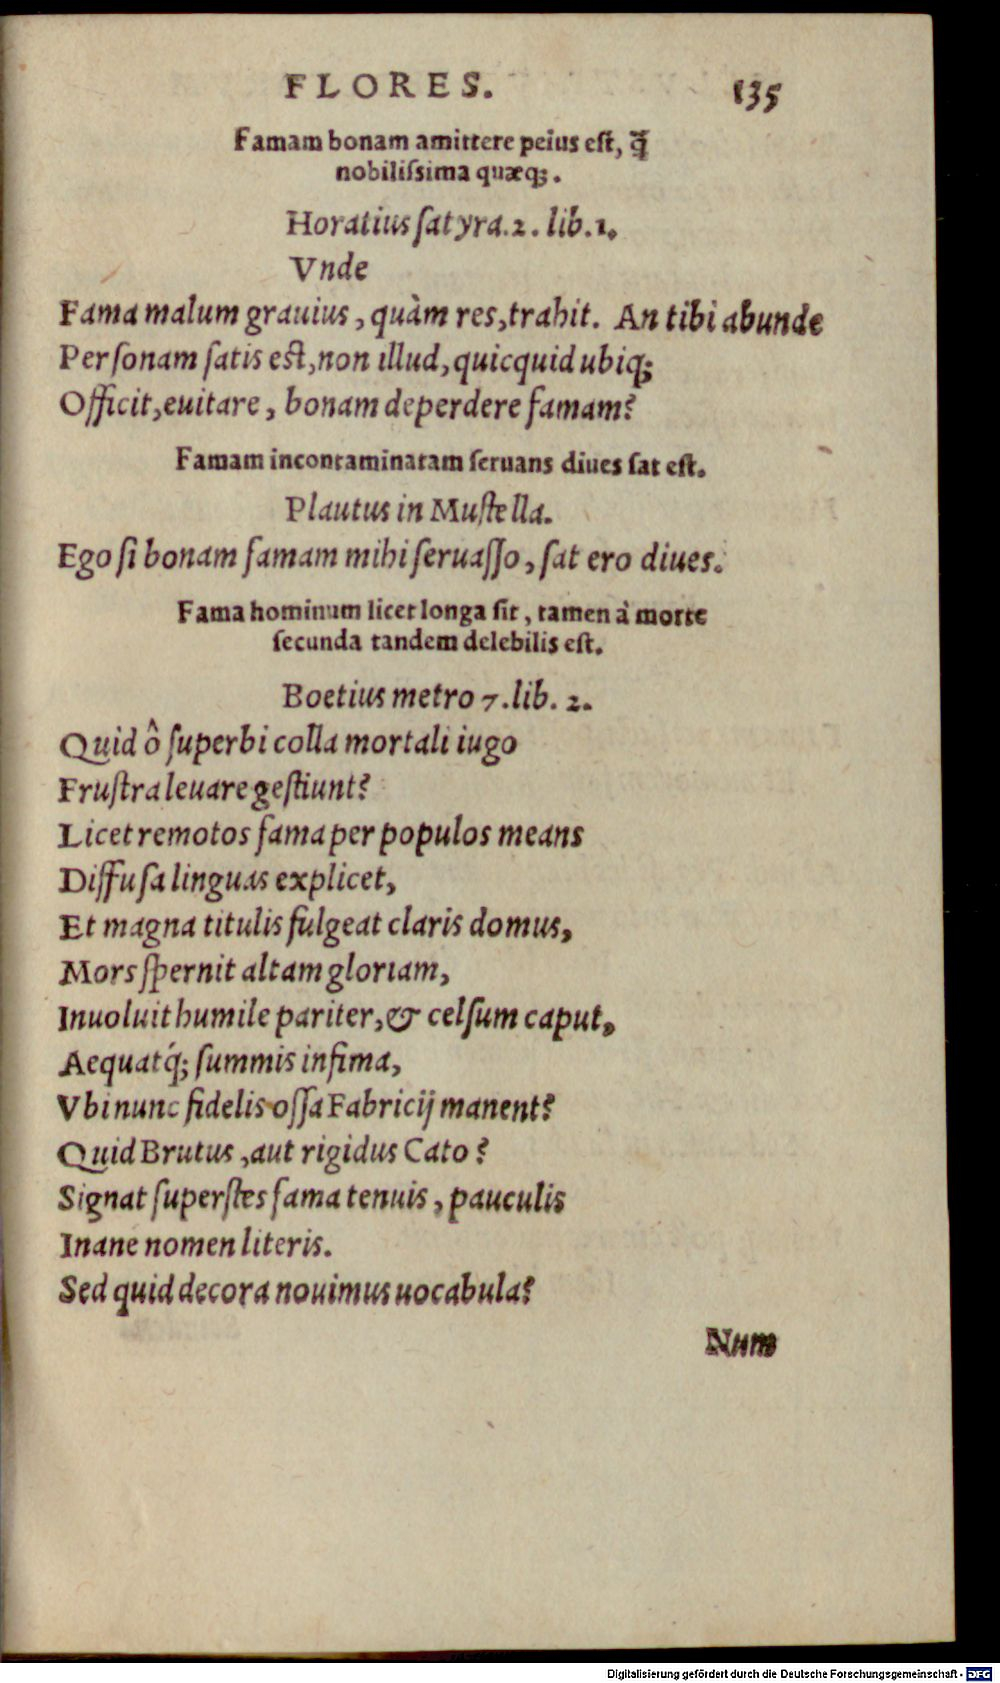 FLORES. 135
Famam bonam amittere peius est, q̃
nobilissima quæq;.
Horatius satyra.2. lib.1.
Vnde
Fama malum grauius, quàm res, trahit. An tibi abunde
Personam satis est, non illud, quicquid ubiq;
Officit, euitare, bonam deperdere famam?
Famam incontaminatam seruans diues sat est.
Plautus in Mustella.
Ego si bonam famam mihi seruasso, sat ero diues.
Fama hominum licet longa sit, tamen à morte
secunda tandem delebilis est.
Boetius metro 7. lib. 2.
Quid ô superbi colla mortali iugo
Frustra leuare gestiunt?
Licet remotos fama per populos means
Diffusa linguas explicet,
Et magna titulis fulgeat claris domus,
Mors spernit altam gloriam,
Inuoluit humile pariter, & celsum caput,
Aequatq́; summis infima,
Vbi nunc fidelis ossa Fabricij manent?
Quid Brutus, aut rigidus Cato?
Signat superstes fama tenuis, pauculis
Inane nomen literis.
Sed quid decora nouimus uocabula?
Num
Digitalisierung gefördert durch die Deutsche Forschungsgemeinschaft - DFG